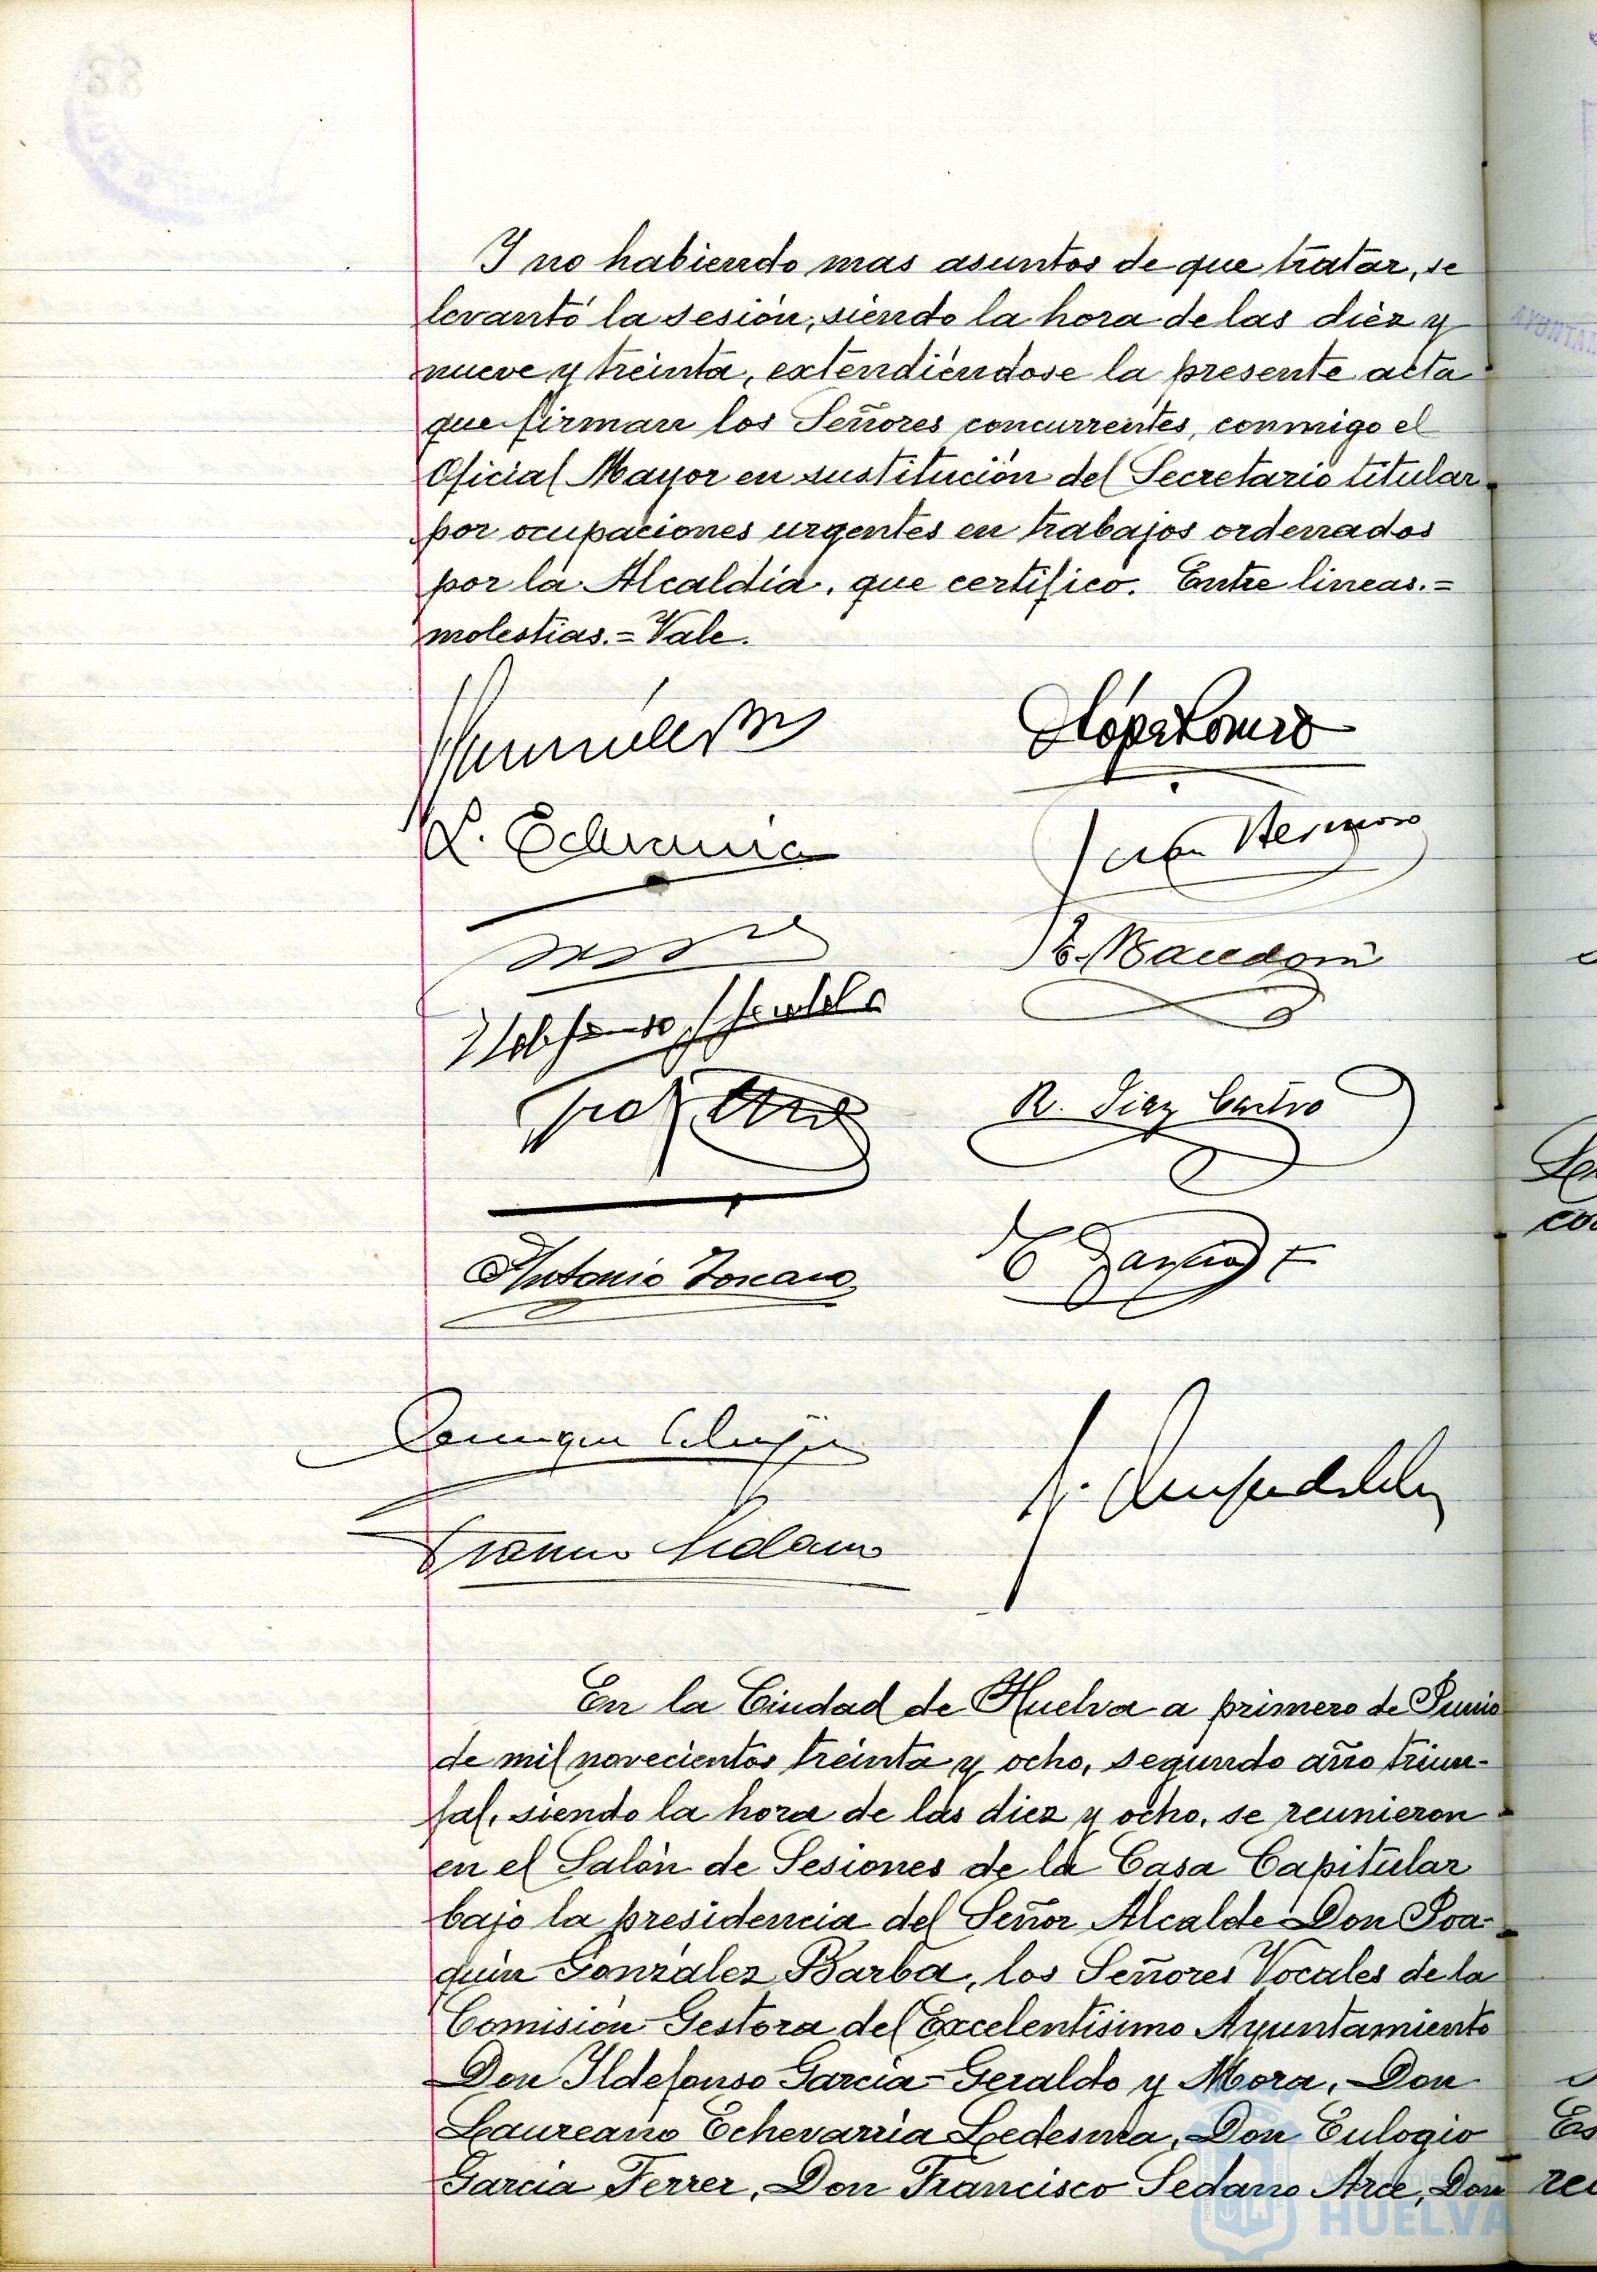 Y no habiendo mas asuntos de que tratar, se
levantó la sesión, siendo la hora de las diez y
nueve y treinta, extendiéndose la presente acta
que firman los Señores concurrentes, conmigo el
Oficial Mayor en sustitución del Secretario titular
por ocupaciones urgentes en trabajos ordenados
por la Alcaldía, que certifico. Entre lineas.=
molestias.= Vale.
L. Echevarria
Juan Hermoso
R. Diaz Castro
Antonio Toscano
E Garcia F
Francisco Sedano
En la Ciudad de Huelva a primero de Junio
de mil novecientos treinta y ocho, segundo año triun-
fal, siendo la hora de las diez y ocho, se reunieron
en el Salón de Sesiones de la Casa Capitular
bajo la presidencia del Señor Alcalde Don Joa-
quin González Barba, los Señores Vocales de la
Comisión Gestora del Excelentísimo Ayuntamiento
Don Ildefonso Garcia-Geraldo y Mora, Don
Laureano Echevarria Ledesma, Don Eulogio
Garcia Ferrer, Don Francisco Sedano Arce, Don
Ayuntamiento de
HUELVA